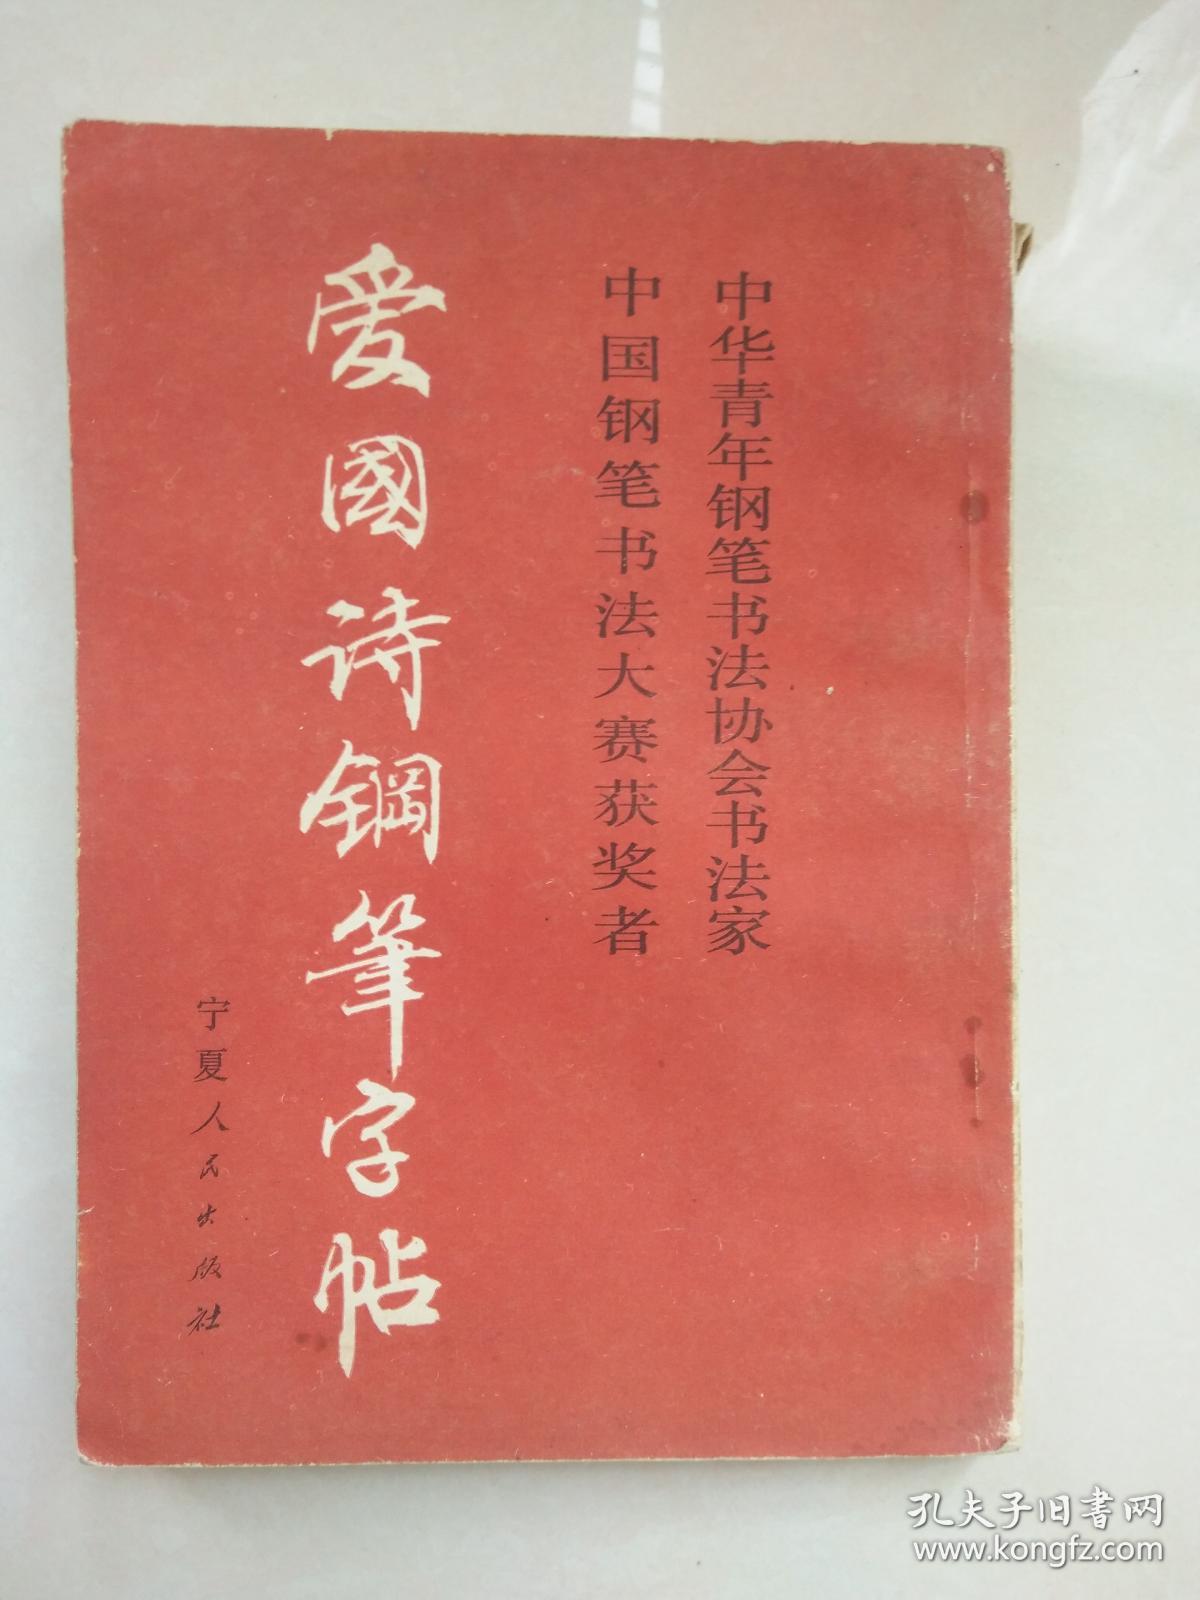 中华青年钢笔书法协会书法家
中国钢笔书法大赛获奖者
爱國诗鋼筆字帖
宁夏人民出版社
孔夫子旧書网
www.kongfz.com